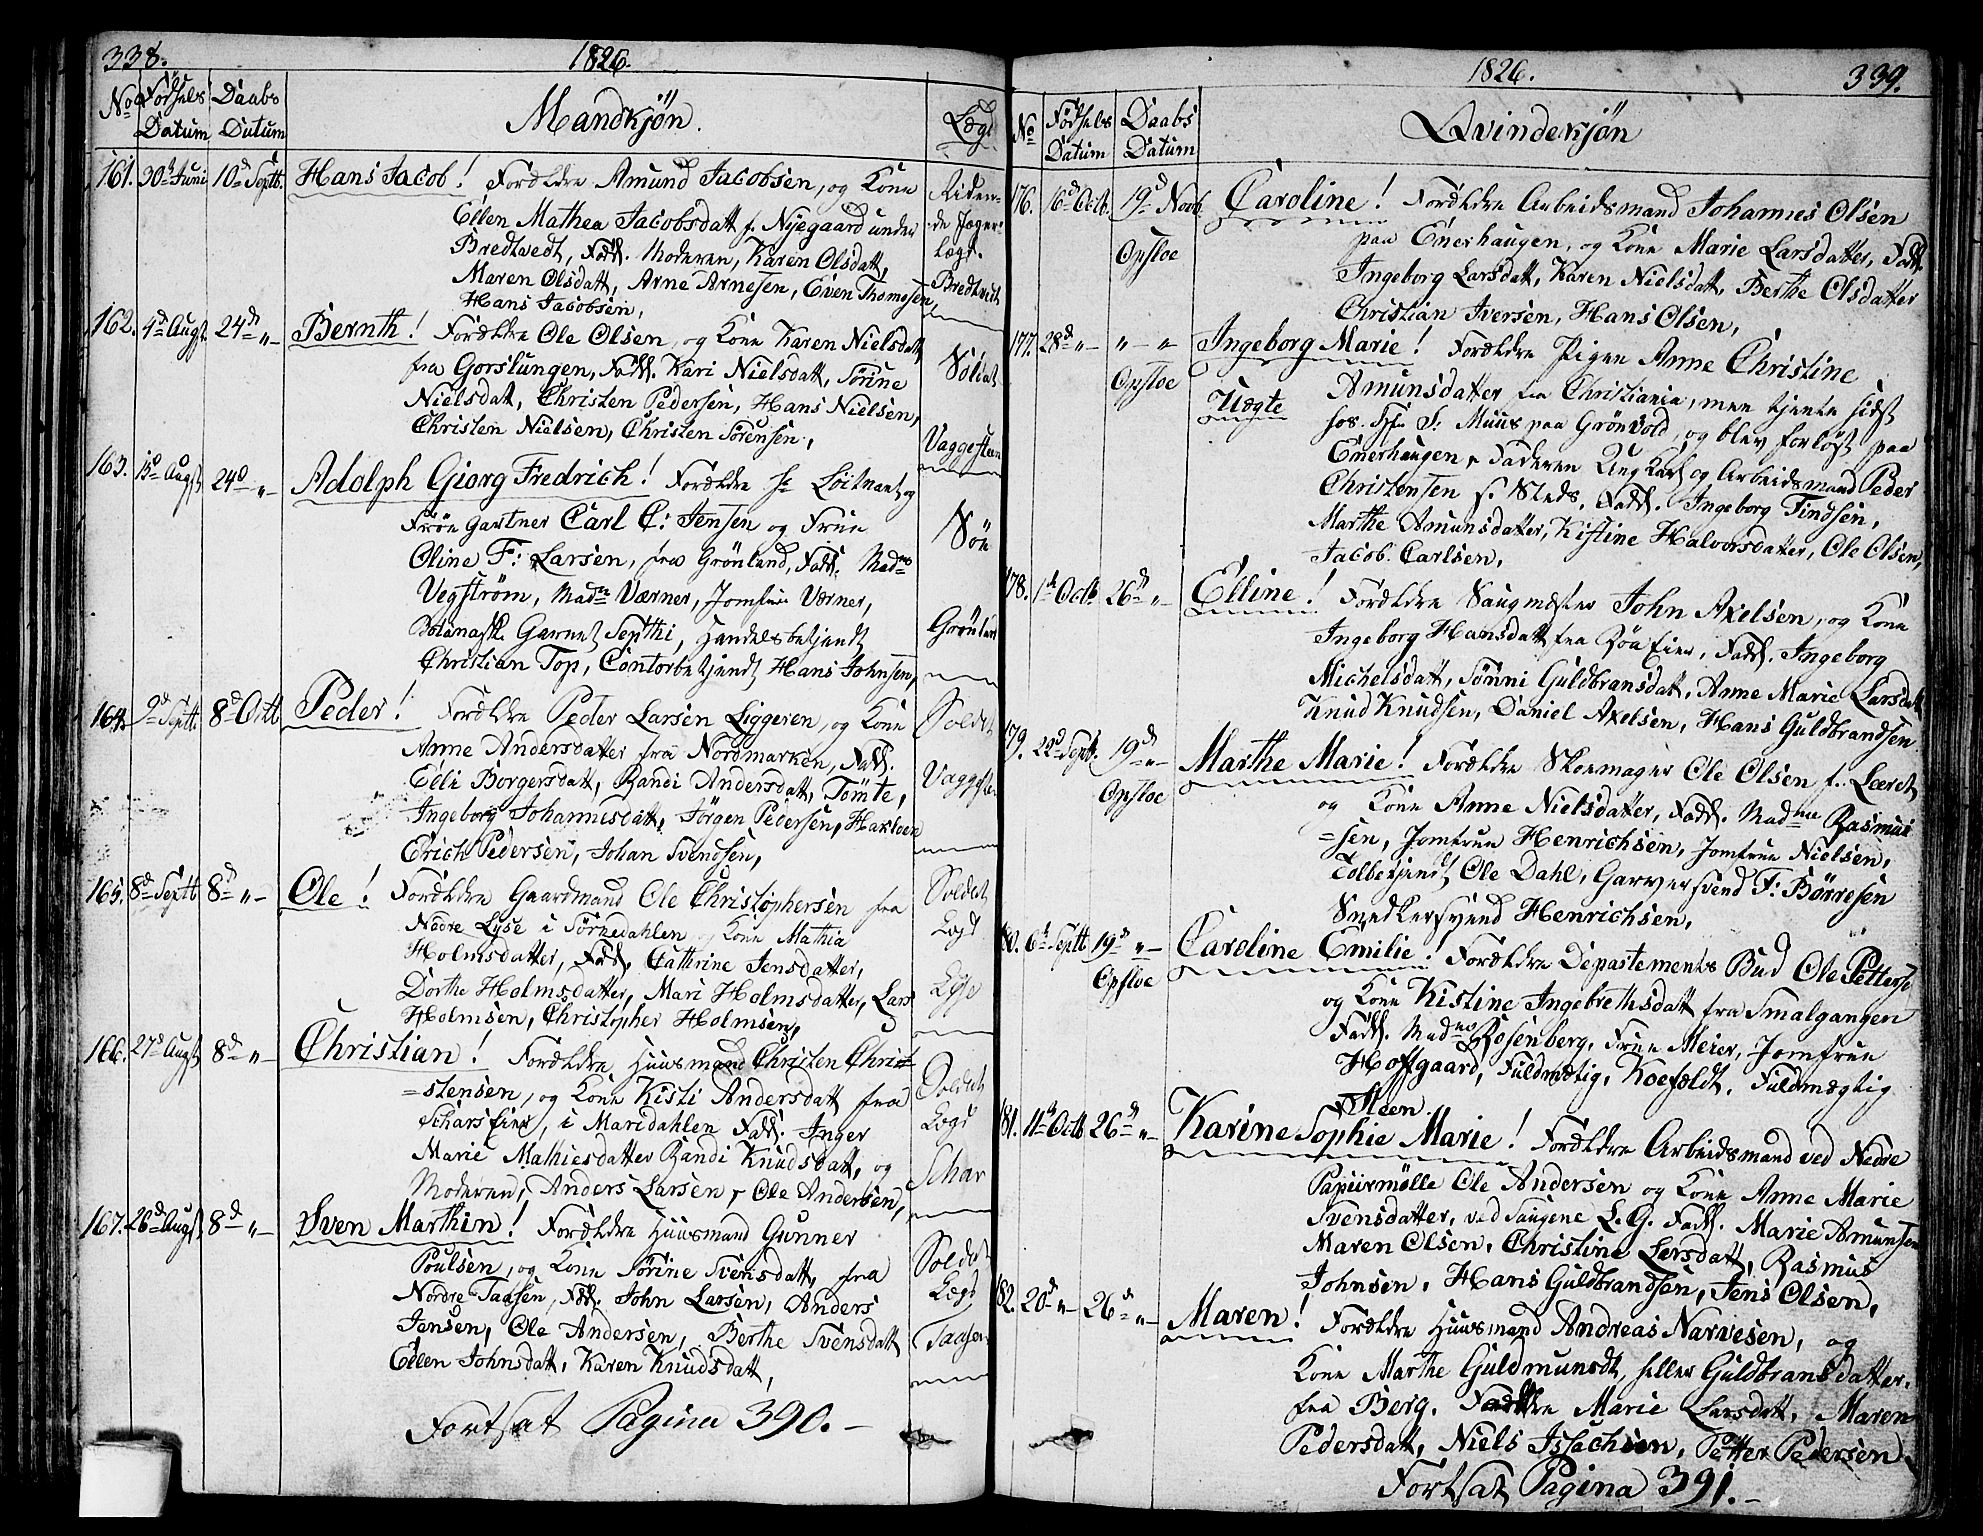 338.
1826.
No
Födsels Datum
Daabs Datum
Mandkjön.
Lægd
161. 30te Juni 10d Septb. Hans Jacob! Forældre Amund Jacobsen, og Kone
Ellen Mathea Jacobsdatt f. Nyegaard under
Bredtvedt, Fadd. Moderen, Karen Olsdatt,
Maren Olsdatt, Arne Arnesen, Even Thomesen,
Hans Jacobsen,
Riden-
de Jæger
Lægd.
Bredtvedt
162. 4d Augst. 24d "- Bernth! Forældre Ole Olsen, og Kone Karen Nielsdatt
fra Gorslungen, Fadd. Kari Nielsdatt, Sörine
Nielsdatt, Christen Pedersen, Hans Nielsen,
Christen Nielsen, Christen Sörensen,
Soldat
Vaggesteen
163. 15d Augst 24d "- Adolph Giorg Fredrich! Forældre Hr Loitnant og
Frøe gartner Carl C: Jensen og Frue
Oline F: Larsen, fra Grönland, Fadd. Madme
Vegström, Madme Værner, Jomfrue Værner,
Botanask Garnet Septhi, Handelsbetjendt
Christian Top, Contorbetjendt Hans Johnsen,
Söe
Grönland
164. 9d Septb 8d Octb Peder! Forældre Peder Larsen Liggeren, og Kone
Anne Andersdatter fra Nordmarken, Fadd.
Eeli Borgersdatt, Randi Andersdatt, Tömte,
Ingeborg Johannesdatt, Jörgen Pedersen, Hakloen
Erich Pedersen, Johan Svendsen,
Soldat
Vaggesten
165. 8d Septb 8d "- Ole! Forældre Gaardmand Ole Christophersen fra
Nedre Lyse i Sörkedahlen og Kone Mathia
Holmsdatter, Fadd. Cathrine Jensdatter,
Dorthe Holmsdatter, Mari Holmsdatter, Lars
Holmsen, Christopher Holmsen,
Soldat
Lægd
Lyse
166. 27d Augst 8d "- Christian! Forældre Huusmand Christen Christ
=stensen, og Kone Kisti Andersdatt fra
Schars Eier, i Maridahlen Fadd. Inger
Marie Mathiesdatter Randi Knudsdatt, og
Moderen, Anders Larsen, Ole Andersen,
Soldat
Lægd
Schar
167. 26d Augst, 8d "- Sven Marthin! Forældre Huusmand Gunner
Poulsen, og Kone Sörine Svensdatt, fra
Nordre Taasen, Fadd. John Larsen, Anders
Jensen, Ole Andersen, Berthe Svensdatt
Ellen Johnsdatt, Karen Knudsdatt,
Soldat
Lægd
Taasen
Fortsat Pagina 390.-
1826.
339.
No
Födsels Datum
Daabs Datum
Qvindekjön
176. 16d Octb. 19d Novb. Opsloe Caroline! Forældre Arbeidsmand Johannes Olsen
paa Enerhaugen, og Kone Marie Larsdatter, Fadd.
Ingeborg Larsdatt, Karen Nielsdatt, Berthe Olsdatter
Christian Iversen, Hans Olsen,
177. 28d "- "-" Opsloe Ingeborg Marie! Forældre Pigen Anne Christine
Uægte Amunsdatter fra Christiania, men tjente sidst
hos S: Muus paa Grönvold, og blev forlöst paa
Enerhaugen, Faderen Ung Karl og Arbeidsmand Peder
Christensen s. Steds, Fadd. Ingeborg Findsen,
Marthe Amunsdatter, Kistine Halvorsdatter, Ole Olsen,
Jacob Carlsen,
178. 1d Octb 26d "- Elline! Forældre Saugmester John Axelsen, og Kone
Ingeborg Hansdatt fra Röa Eier, Fadd. Ingeborg
Michelsdatt, Sönni Guldbransdatt, Anne Marie Larsdatt
Knud Knudsen, Daniel Axelsen, Hans Guldbrandsen
179. 22d Septb. 19d "- Opsloe Marthe Marie! Forældre Skoemager Ole Olsen f. Læret
og Kone Anne Nielsdatter, Fadd. Madme Rasmus
=sen, Jomfrue Henrichsen, Jomfrue Nielsen,
Tolbetjendt Ole Dahl, Garversvend F: Börresen
Snedkersvend Henrichsen,
180. 6te Septb 19d "- Opsloe Caroline Emilie! Forældre Departements Bud Ole Petterse
og Kone Kistine Ingebrethsdatt fra Smalgangen
Fadd. Madme Rosenberg, Frue Meier, Jomfrue
Hoffgaard, Fuldmægtig, Koefældt, Fuldmægtig
Steen.
181. 11te Octb 26d "- Karine Sophie Marie! Forældre Arbeidsmand ved Nedre
Papiirmölle Ole Andersen og Kone Anne Marie
Svensdatter, ved Saugene L.G. Fadd. Marie Amunsen
Maren Olsen, Christine Larsdatt, Rasmus
Johnsen, Hans Guldbrandsen, Jens Olsen,
182. 20d "- 26d "- Maren! Forældre Huusmand Andreas Narvesen, og
Kone Marthe Guldmunsdt, heller Guldbransdatter.
fra Berg. Faddere Marie Larsdatt, Maren
Pedersdatt, Niels Issachsen, Petter Pedersen
Fortsat Pagina 391.-